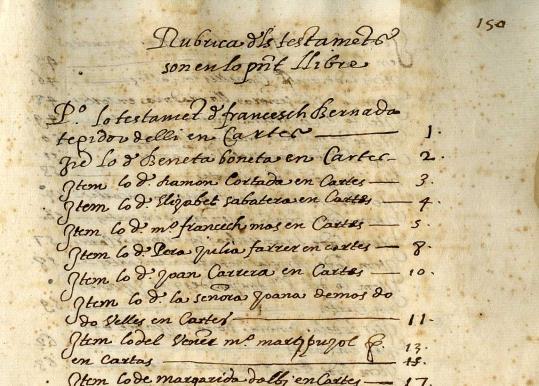 150
Rubrica dls testamets
son en lo pñt Llibre
P.º lo testamet d francesch Bernada
texidor de lli en Cartes 1.
Ite lo d Beneta boneta en Cartes 2.
Item lo d. Ramon Cortada en Cartes 3.
Item lo d. Elizabet sabatera en Cartes 4.
Item lo d. mº francech mas en Cartes 5.
Item lo d. Pera Julia farrer en cartes 8
Item lo d. Joan Carrera en Cartes 10.
Item lo d. la senora Joana demos do
do Velles en Cartes 11.
Item lo del Vener mº marti pujol 13.
en Cartas 15.
Item lo de margarida dalbi en Cartes 17.